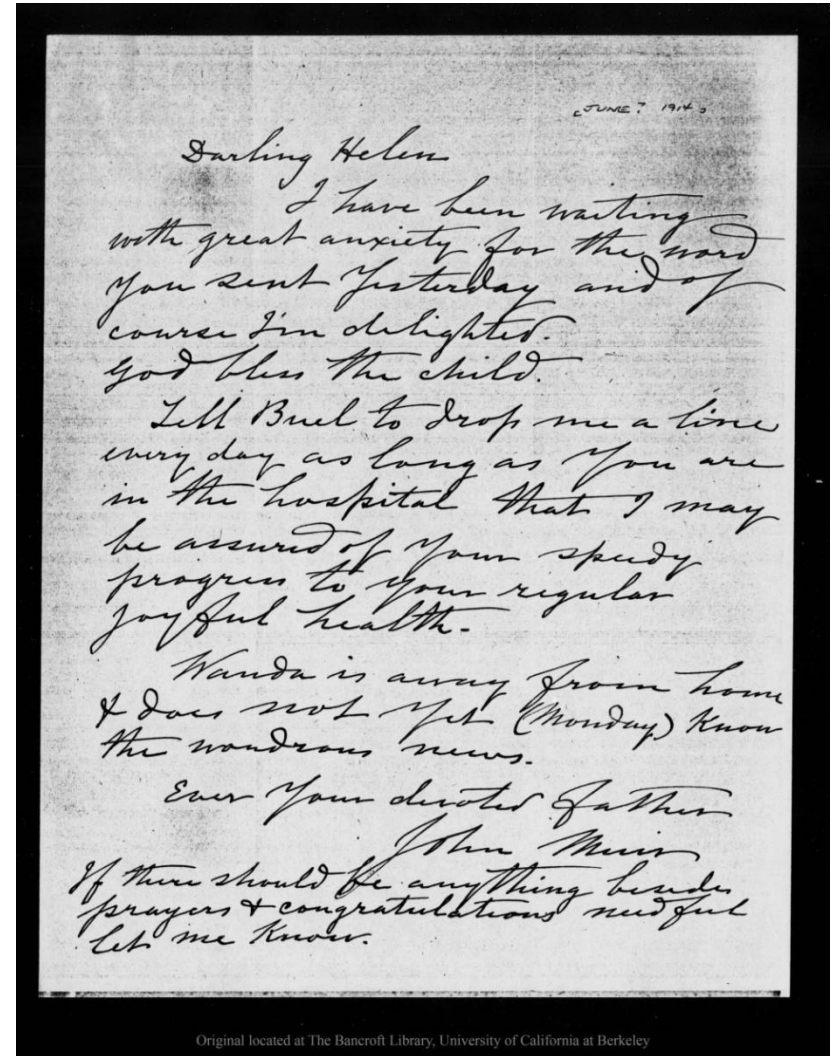 [JUNE? 1914]
Darling Helen
I have been waiting
with great anxiety for the word
you sent Yesterday and of
course I'm delighted.
God bless the child.
Tell Buel to drop me a line
every day as long as you are
in the hospital that I may
be assured of your speedy
progress to your regular
joyful health.
Wanda is away from home
& does not yet (Monday) know
the wondrous news.
Ever your devoted father
John Muir
If there should be anything besides
prayers & congratulations needful
let me know.
Original located at The Bancroft Library, University of California at Berkeley